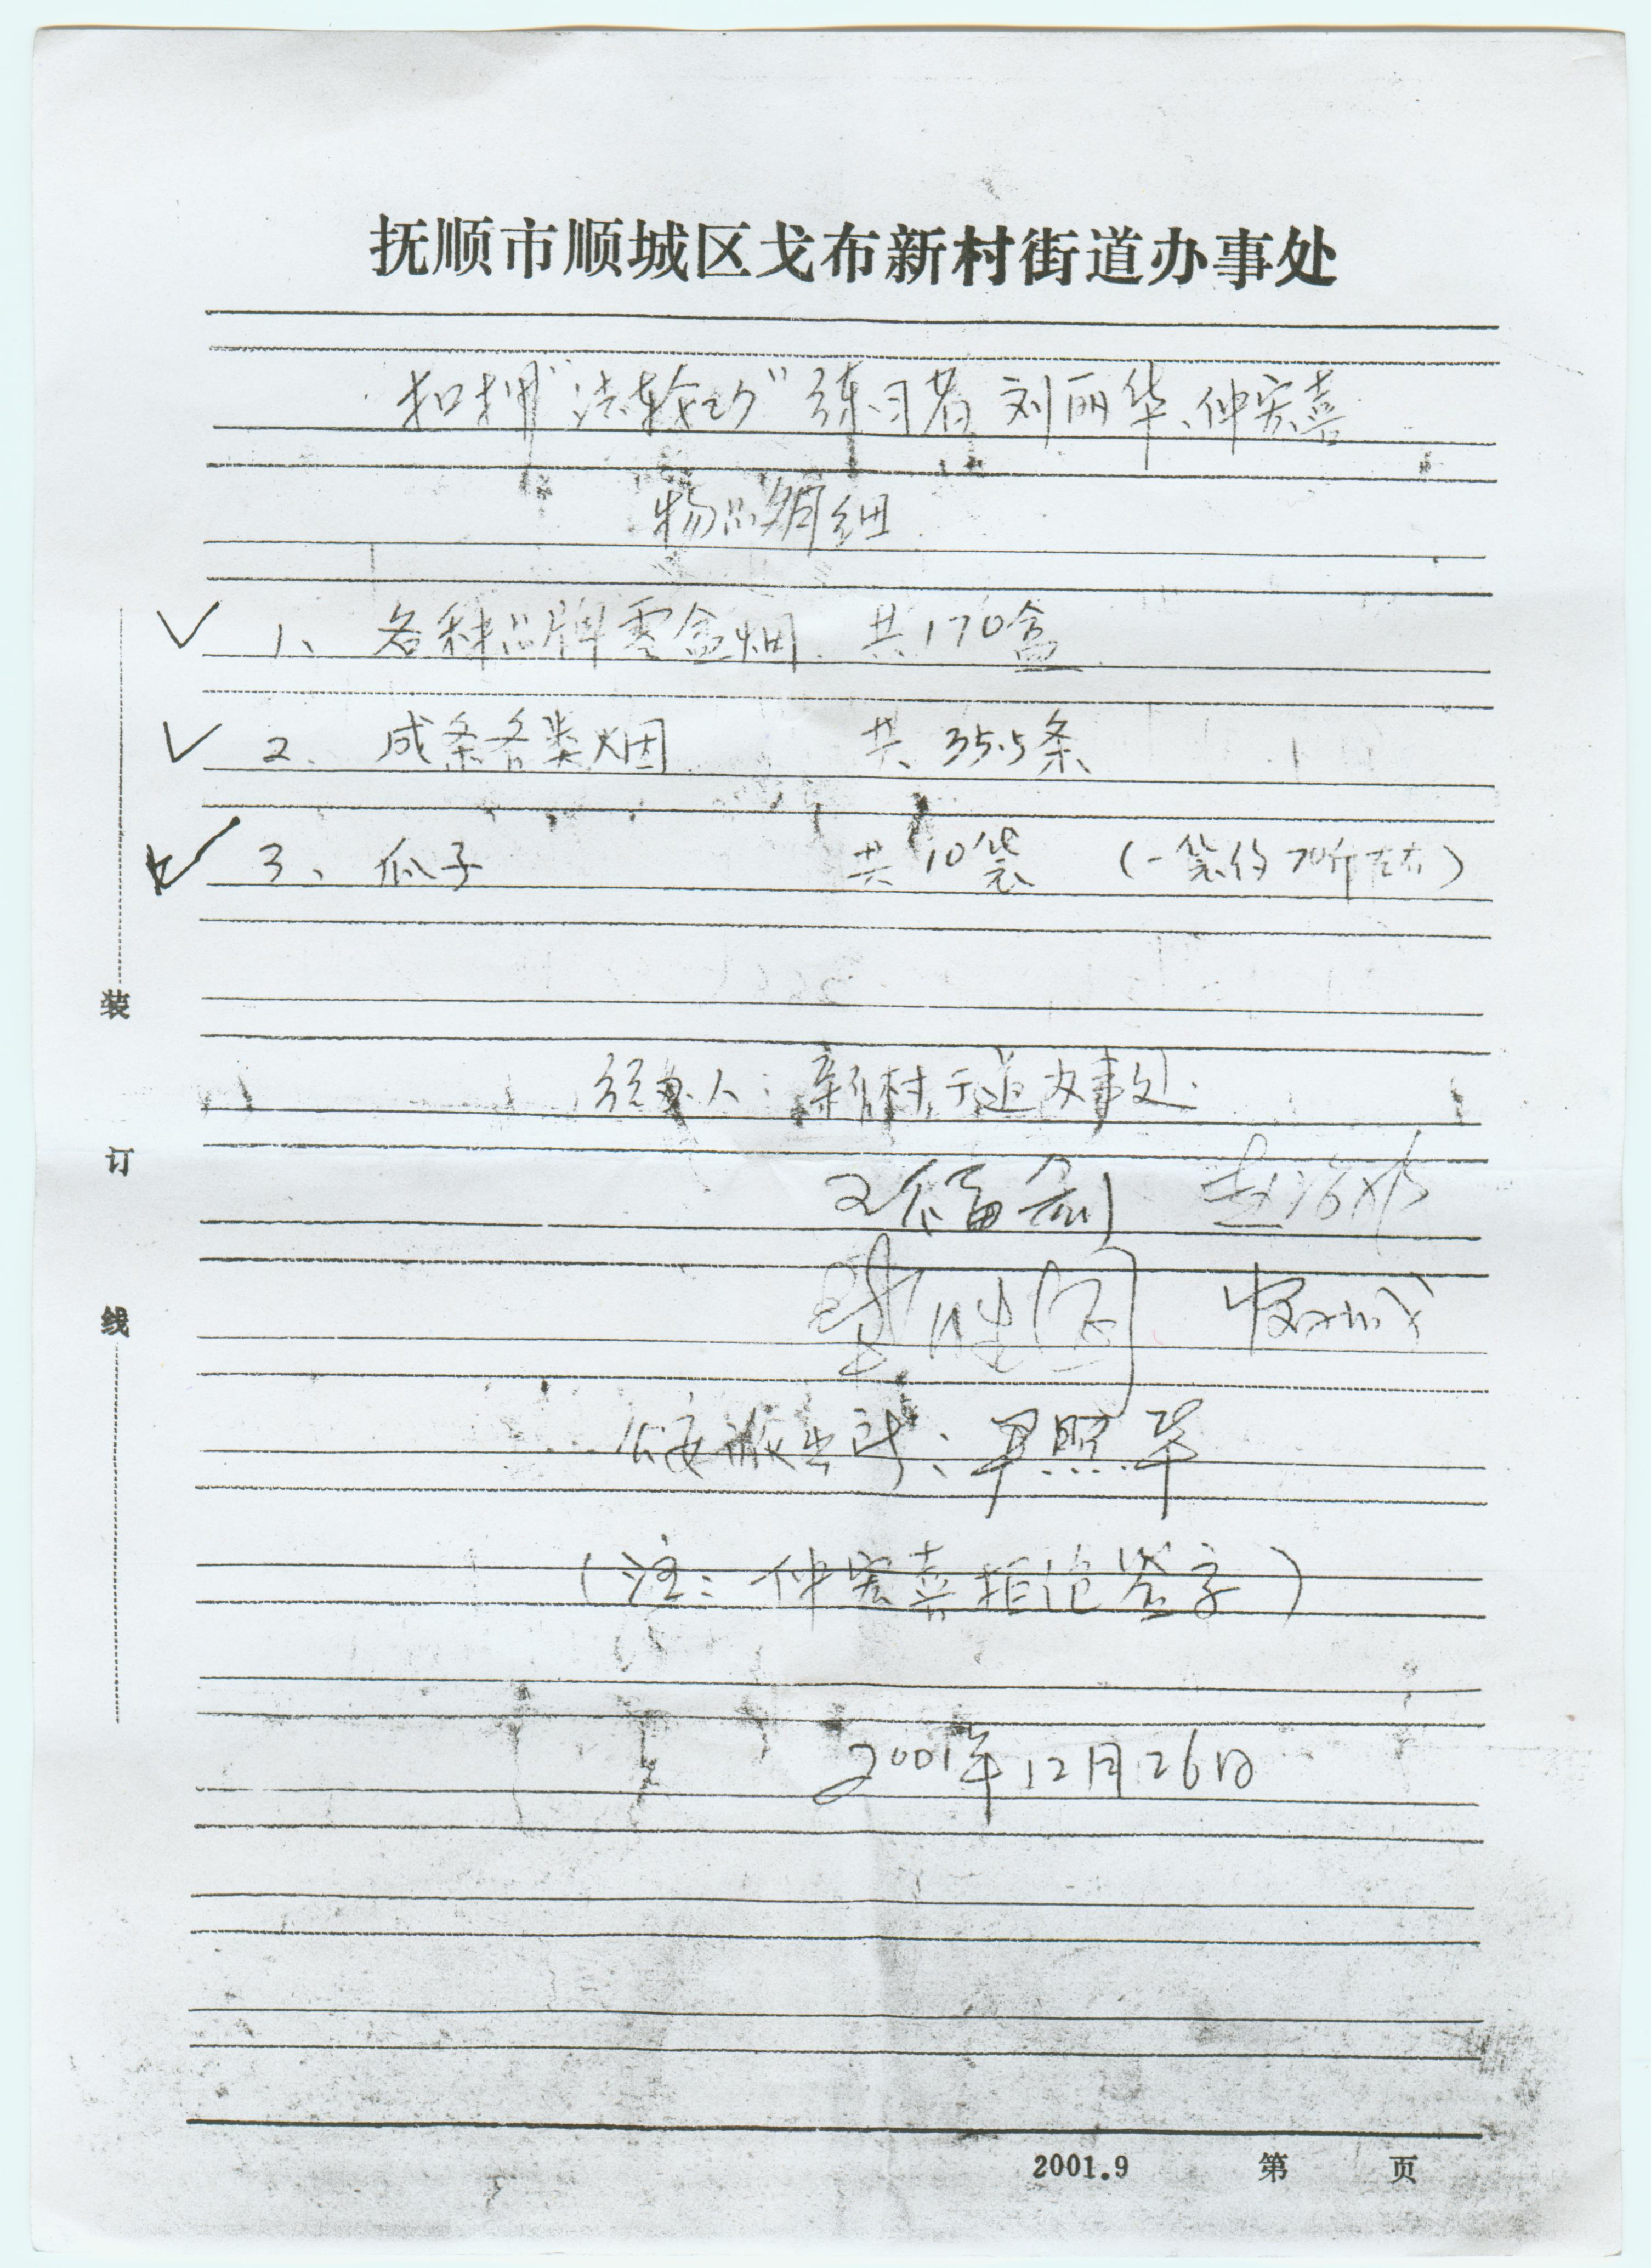 抚顺市顺城区戈布新村街道办事处
扣押"法轮功"练习者刘丽华、仲宏喜
物品明细
1、各种品牌零盒烟 共170盒
2、成条各类烟 共35.5条
3、瓜子 共10袋 (一袋约70斤左右)
经办人:新村街道办事处
公安派出所:尹照军
(注:仲宏喜拒绝签字)
2001年12月26日
装
订
线
2001.9 第 页